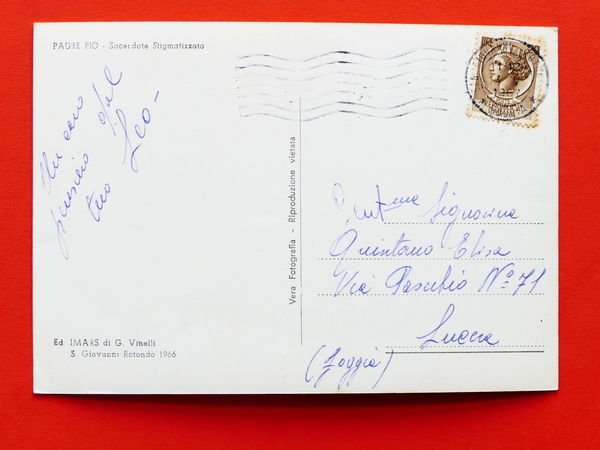 PADRE PIO - Sacerdote Stigmatizzato
Un caro
pensiero dal
tuo Leo-
Ed IMARS di G. Vinelli
S. Giovanni Rotondo 1966
Vera Fotografia - Riproduzione vietata
Gent.ma Signorina
Quintano Elisa
Via Pasubio N° 71
Lucera
(Foggia)